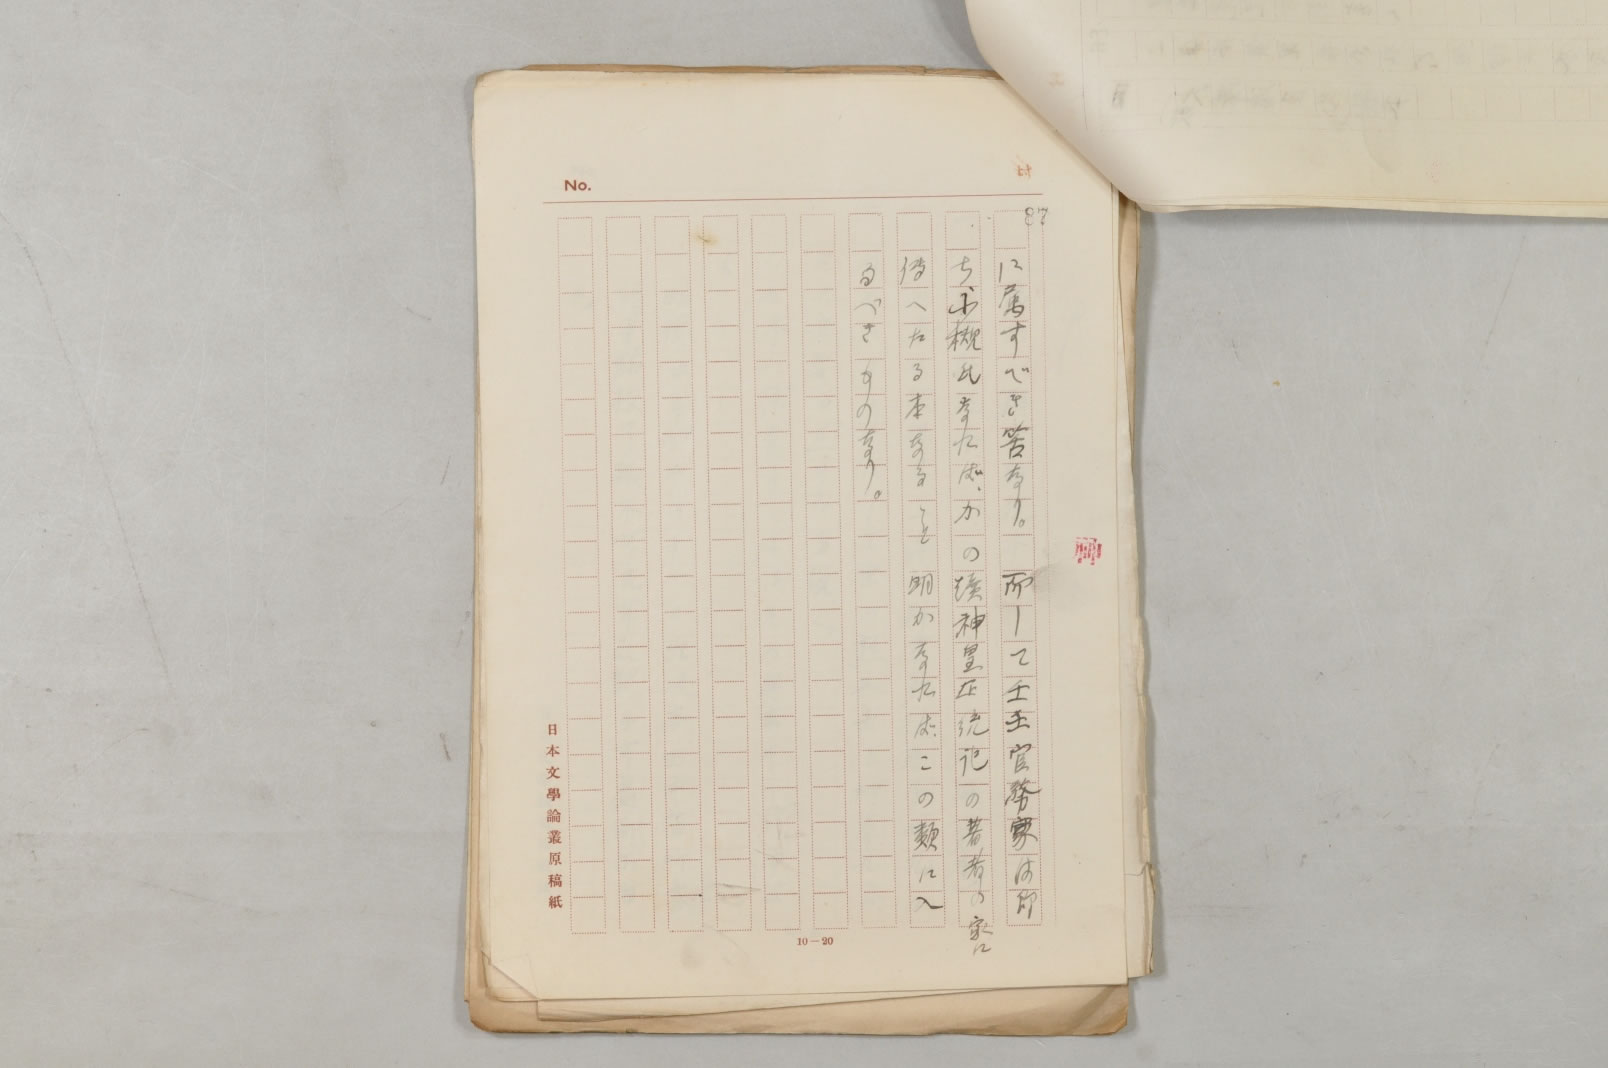 No.
に属すべき筈なり。而して壬生官務家は即
ち小槻氏なれば、かの續神皇正統記の著者の家に
傳へたる本なること明かなればこの類に入
るべきものなり。
日本文學論叢原稿紙
10―20